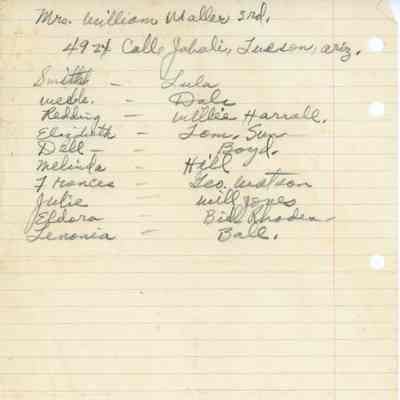 Mrs. William Waller 3rd.
4924 Calle Jabali, Tucson, Ariz.
Smith - Lula
Webb. - Dale
Redding - Willie Harrall.
Elizabeth - Tom. Sun
Dell - Boyd.
Melinda - Hill
Frances - Geo. Watson
Julie - Will Jones
Eldora - Bill Rhoden
Lenonia - Ball.